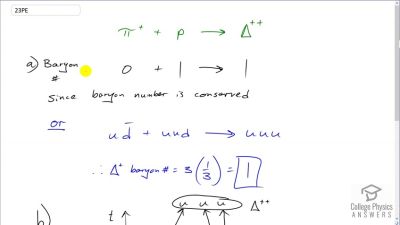 23PE
π⁺ + p → Δ⁺⁺
a) Baryon # 0 + 1 → 1
since baryon number is conserved
or
u d̄ + uud → uuu
∴ Δ⁺ baryon # = 3 (1/3) = 1
b) t ↑ u u u Δ⁺⁺
College Physics
ANSWERS